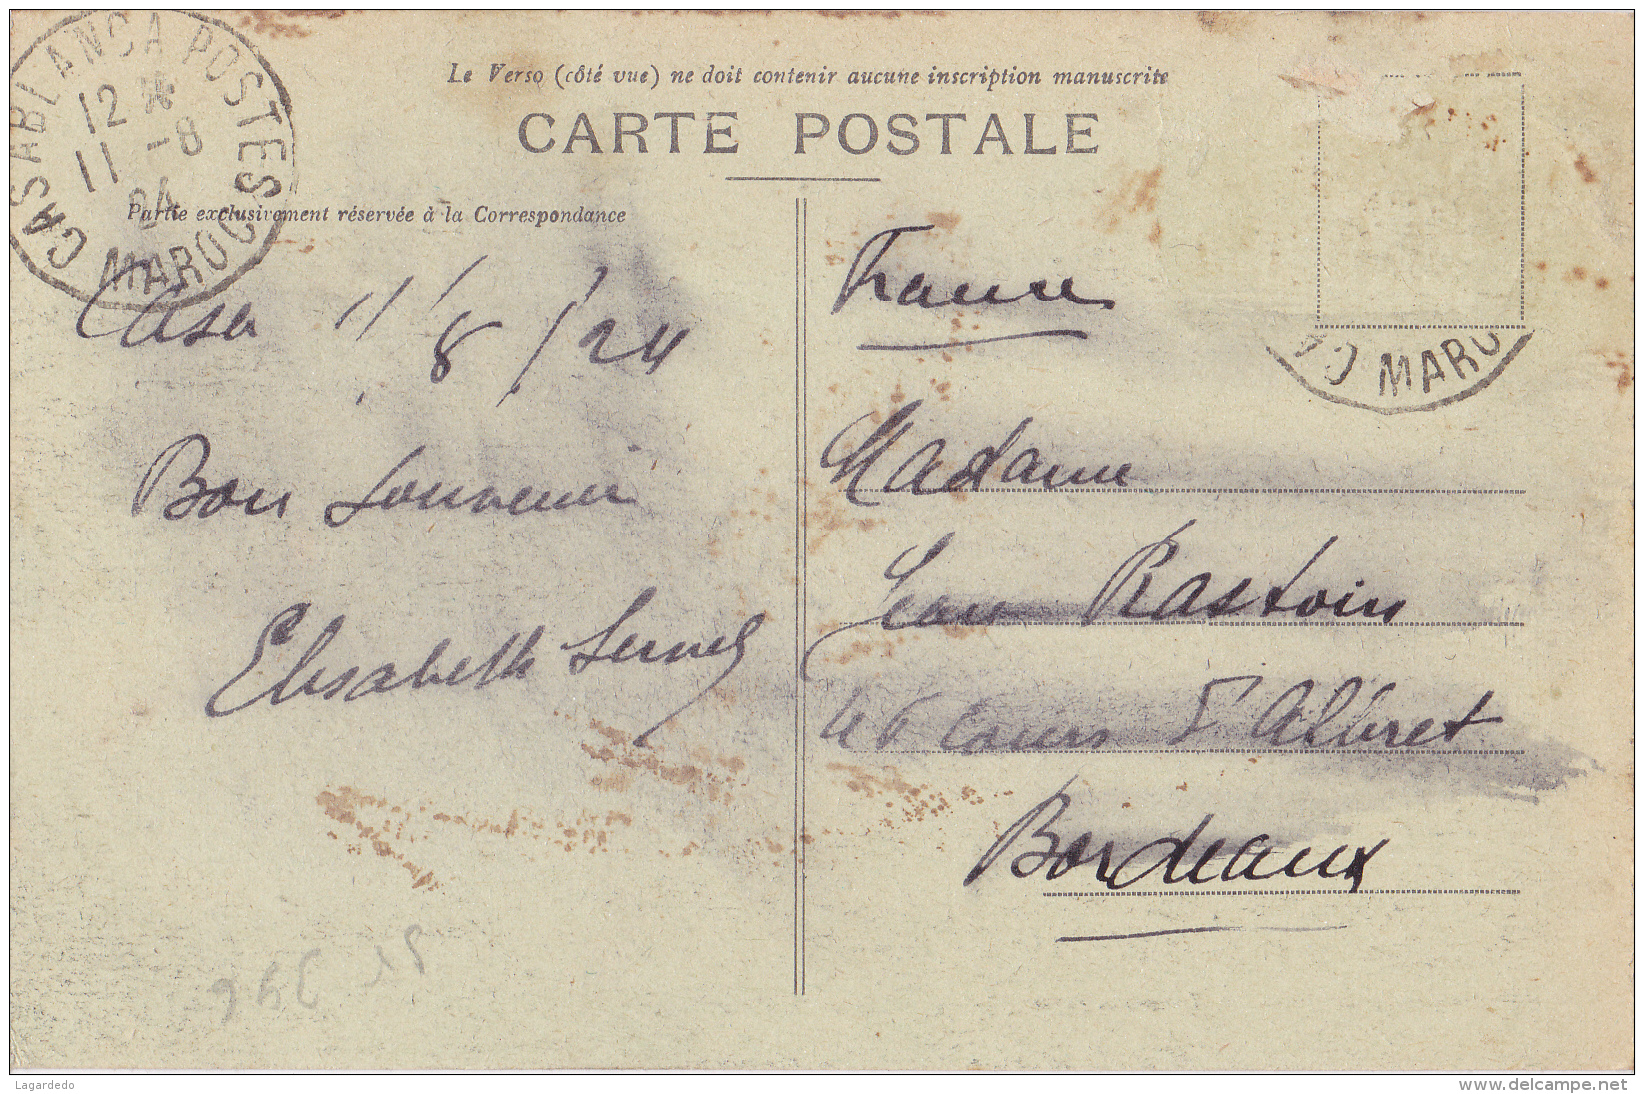 CASABLANCA POSTES
12
11 -8
24
MAROC
Le Verso (côté vue) ne doit contenir aucune inscription manuscrite
CARTE POSTALE
Partie exclusivement réservée à la Correspondance
Casa 11/8/24
Bon souvenir
Elisabeth
France
MARO
Madame
Jean Rastoin
46 Cours d'Albret
Bordeaux
Lagardedo
www.delcampe.net